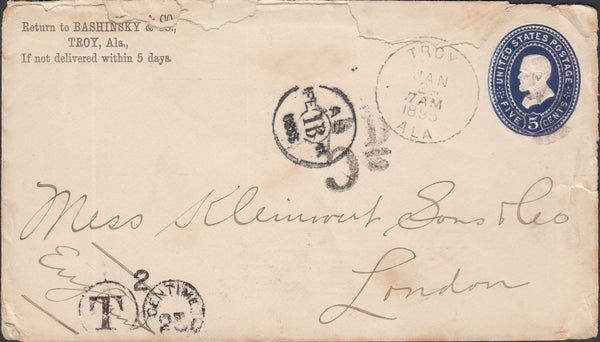 Return to BASHINSKY & CO.,
TROY, Ala.,
If not delivered within 5 days.
TROY
JAN
7AM
1895
ALA
UNITED STATES POSTAGE
FIVE 5 CENTS
Mess Kleinwort Sons & Co
London
England
T
2
CENTIMES
25